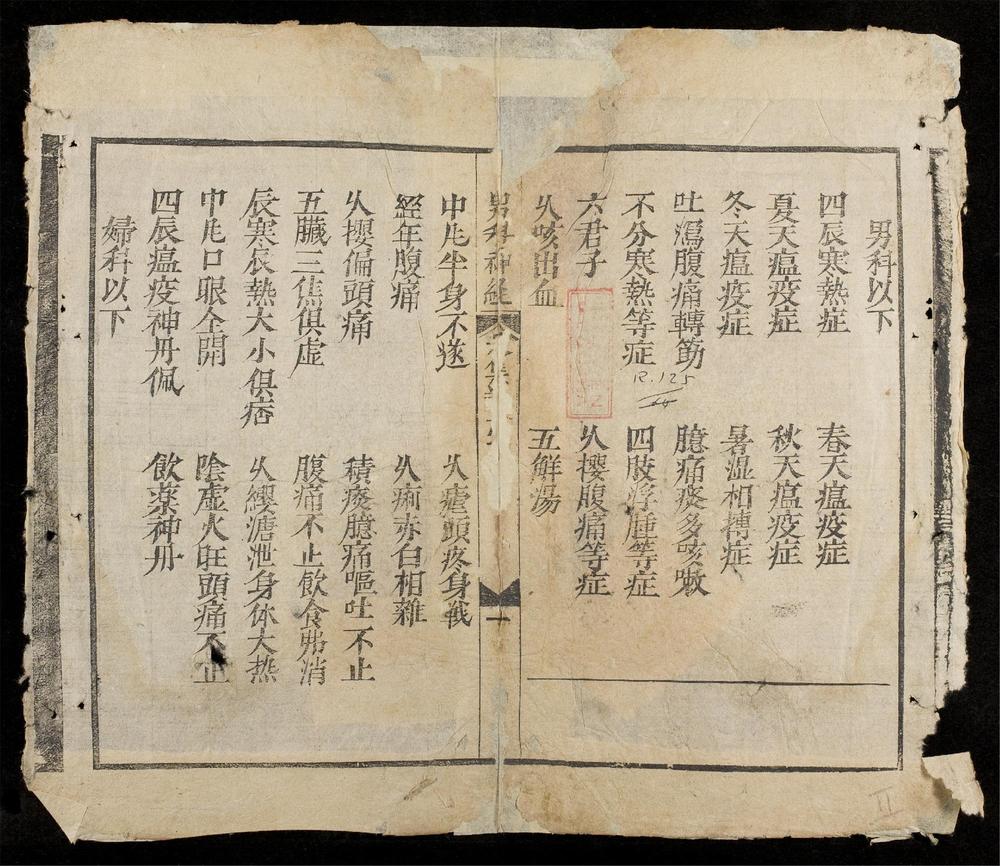 男科以下
四辰寒熱症　春天瘟疫症
夏天瘟疫症　秋天瘟疫症
冬天瘟疫症　暑湿相摶症
吐瀉腹痛轉筋　臆痛痰多咳嗽
不分寒熱等症　四肢浮腫等症
R.125
六君子　乆櫻腹痛等症
乆咳出血　五鮮湯
男科神經　一
中凨半身不遂　乆瘧頭疼身戰
經年腹痛　乆痢赤白相雜
乆櫻偏頭痛　積痰臆痛嘔吐不止
五臟三焦俱虛　腹痛不止飲食弗消
辰寒辰熱大小俱痞　乆纓溏泄身体大热
中凨口眼全開　陰虛火旺頭痛不止
四辰瘟疫神丹佩　飲藥神丹
婦科以下
II